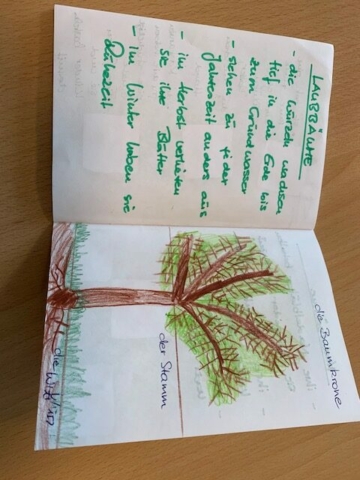 LAUBBÄUME
- die Wurzeln wachsen
tief in die Erde bis
zum Grundwasser
- sehen zu jeder
Jahreszeit anders aus
- im Herbst verlieren
sie ihre Blätter
- im Winter haben sie
Ruhezeit
die Baumkrone
der Stamm
die